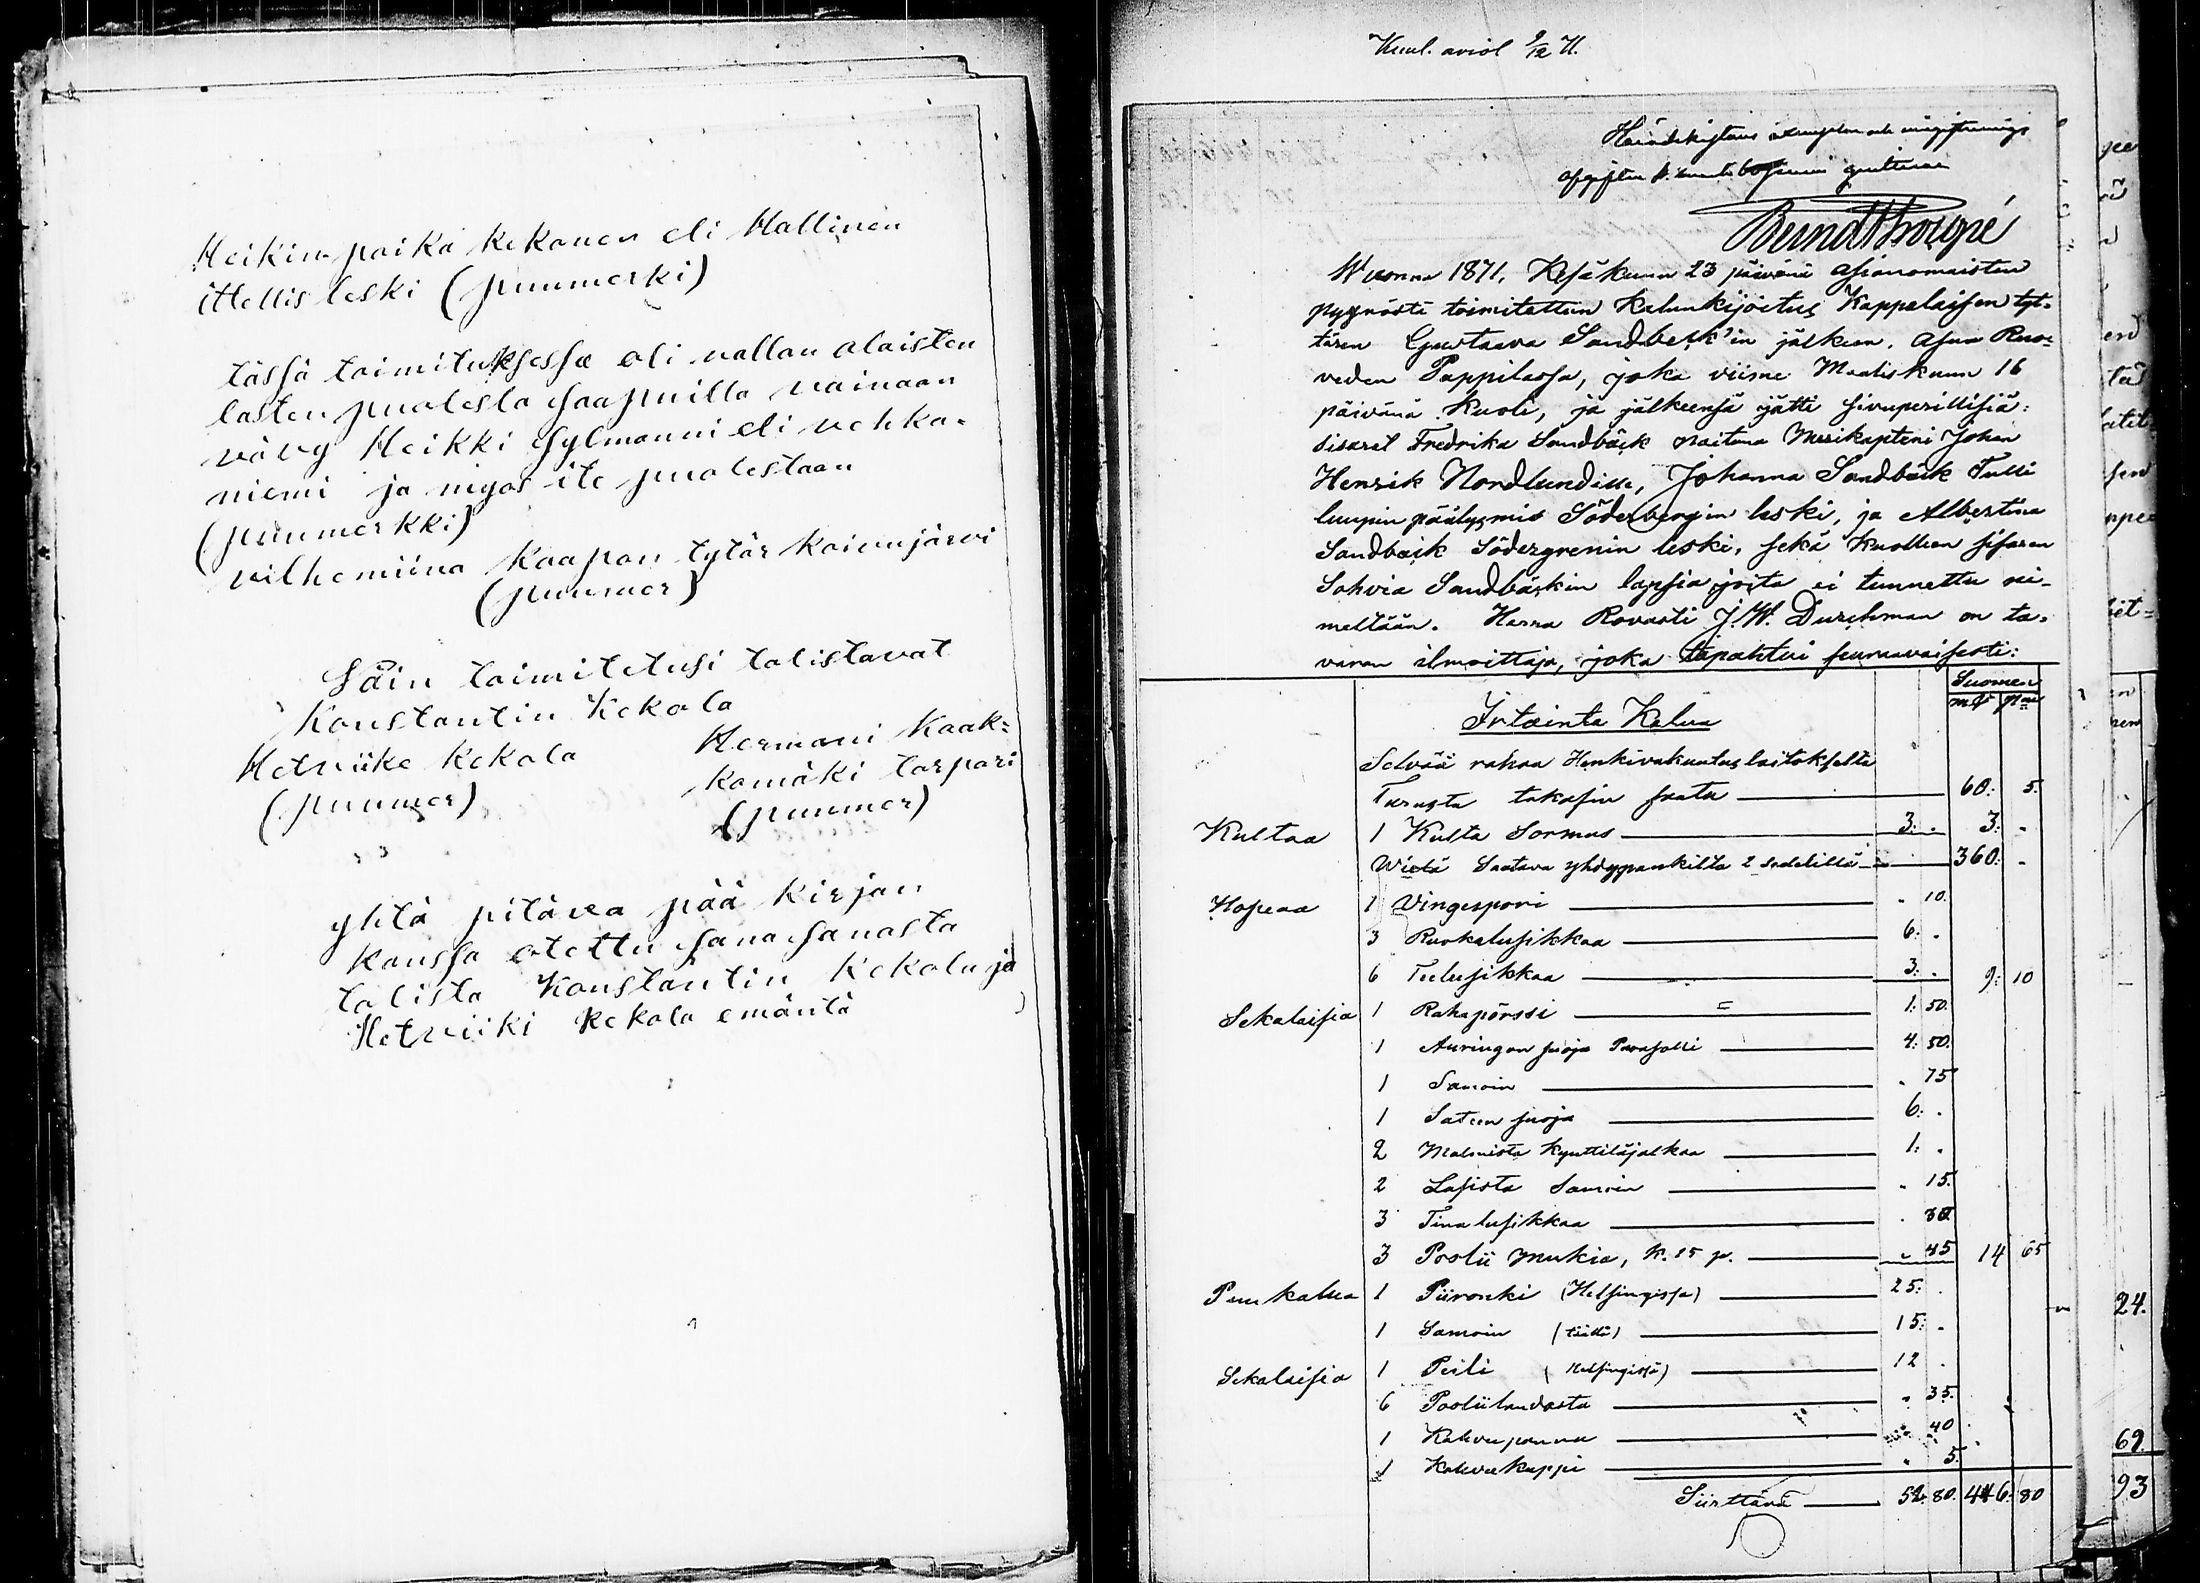 Heikin poika kekonen eli Hallinen
ittellis leski (puumerki)
tässä toimituksessa oli vallan alaisten
lasten puolesta saapuilla vainaan
vävy Heikki Sylmanni eli vehka-
niemi ja myös ite puolestaan
(puumerkki)
vilhemiina Kaapon tytär koivujärvi
(puumer)
Näin toimitetusi todistavat
Konstantin Kekola
Hetviike Kekola
(puumer)
Hermani Kaak-
komäki torpari
(puumer)
yhtä pitävä pää kirjan
kanssa otettu sana sanasta
todista Konstantin Kekola ja
Hetviiki Kekola emäntä
Kuul. aviol 9/12 71.
Wuonna 1871, Kesäkuun 23 päivänä asianomaisten
pyynöstä toimitettiin Kalunkirjoitus Kappalaisen tyt-
tären Gustaava Sandbäck'in jälkeen, asuva Ruo-
veden Pappilassa, joka viime Maaliskuun 16
päivänä kuoli, ja jälkeensä jätti sivuperillisiä:
sisaret Fredrika Sandbäck naituna Merikapteni Johan
Henrik Nordlundille, Johanna Sandbäck Tulli
luupin päälysmis Söderbergin leski, ja Albertina
Sandbäck Södergrenin leski, sekä kuolleen sisaren
Sohvia Sandbäckin lapsia joita ei tunnettu ni-
meltään. Herra Rovasti J. W. Durchman on ta-
varan ilmoittaja, joka tapahtui seuraavaisesti:
Suomen
mk pnä
Irtainta Kalua
Selvää rahaa Henkivakuutus laitokselta
Turusta takasin saatu 60: 5.
Kultaa 1 Kulta Sormus 3: - 3: -
Wielä Saatava yhdyspankilta 2 sedelillä 360. -
Hopeaa 1 Vingerpori - 10.
3 Ruokalusikkaa 6: -
6 Teelusikkaa 3: - 9: 10
Sekalaisia 1 Rahapörssi 1: 50.
1 Auringon suoja Parasolli 4: 50.
1 Samoin - 75
1 Sateen suoja 6: -
2 Malmista kynttiläjalkaa 1: -
2 Lasista Samoin - 15.
3 Tina lusikkaa - 30
3 Poslii Mukia, k. 15 p. - 45 14 65
Puu kalua 1 Piironki (Helsingissä) 25: -
1 Samoin (täällä) 15: -
Sekalaisia 1 Peili (Helsingissä) 12 -
6 Posliilaudasta - 35.
1 Kahvipannu - 40
1 Kahvikuppi - 5.
Siirttävä 52: 80. 446: 80
24.
69.
93